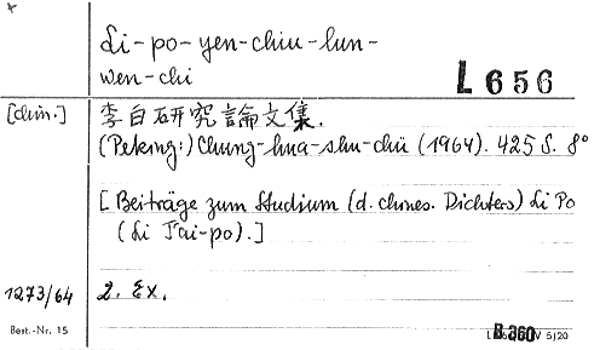 Li-po-yen-chiu-lun-
wen-chi
L 656
[chin.]
李白研究論文集.
(Peking:) Chung-hua-shu-chü (1964). 425 S. 8°
[Beiträge zum Studium (d. chines. Dichters) Li Po
(Li T'ai-po).]
1273/64
2. Ex.
Best.-Nr. 15
B 360
V 5/20